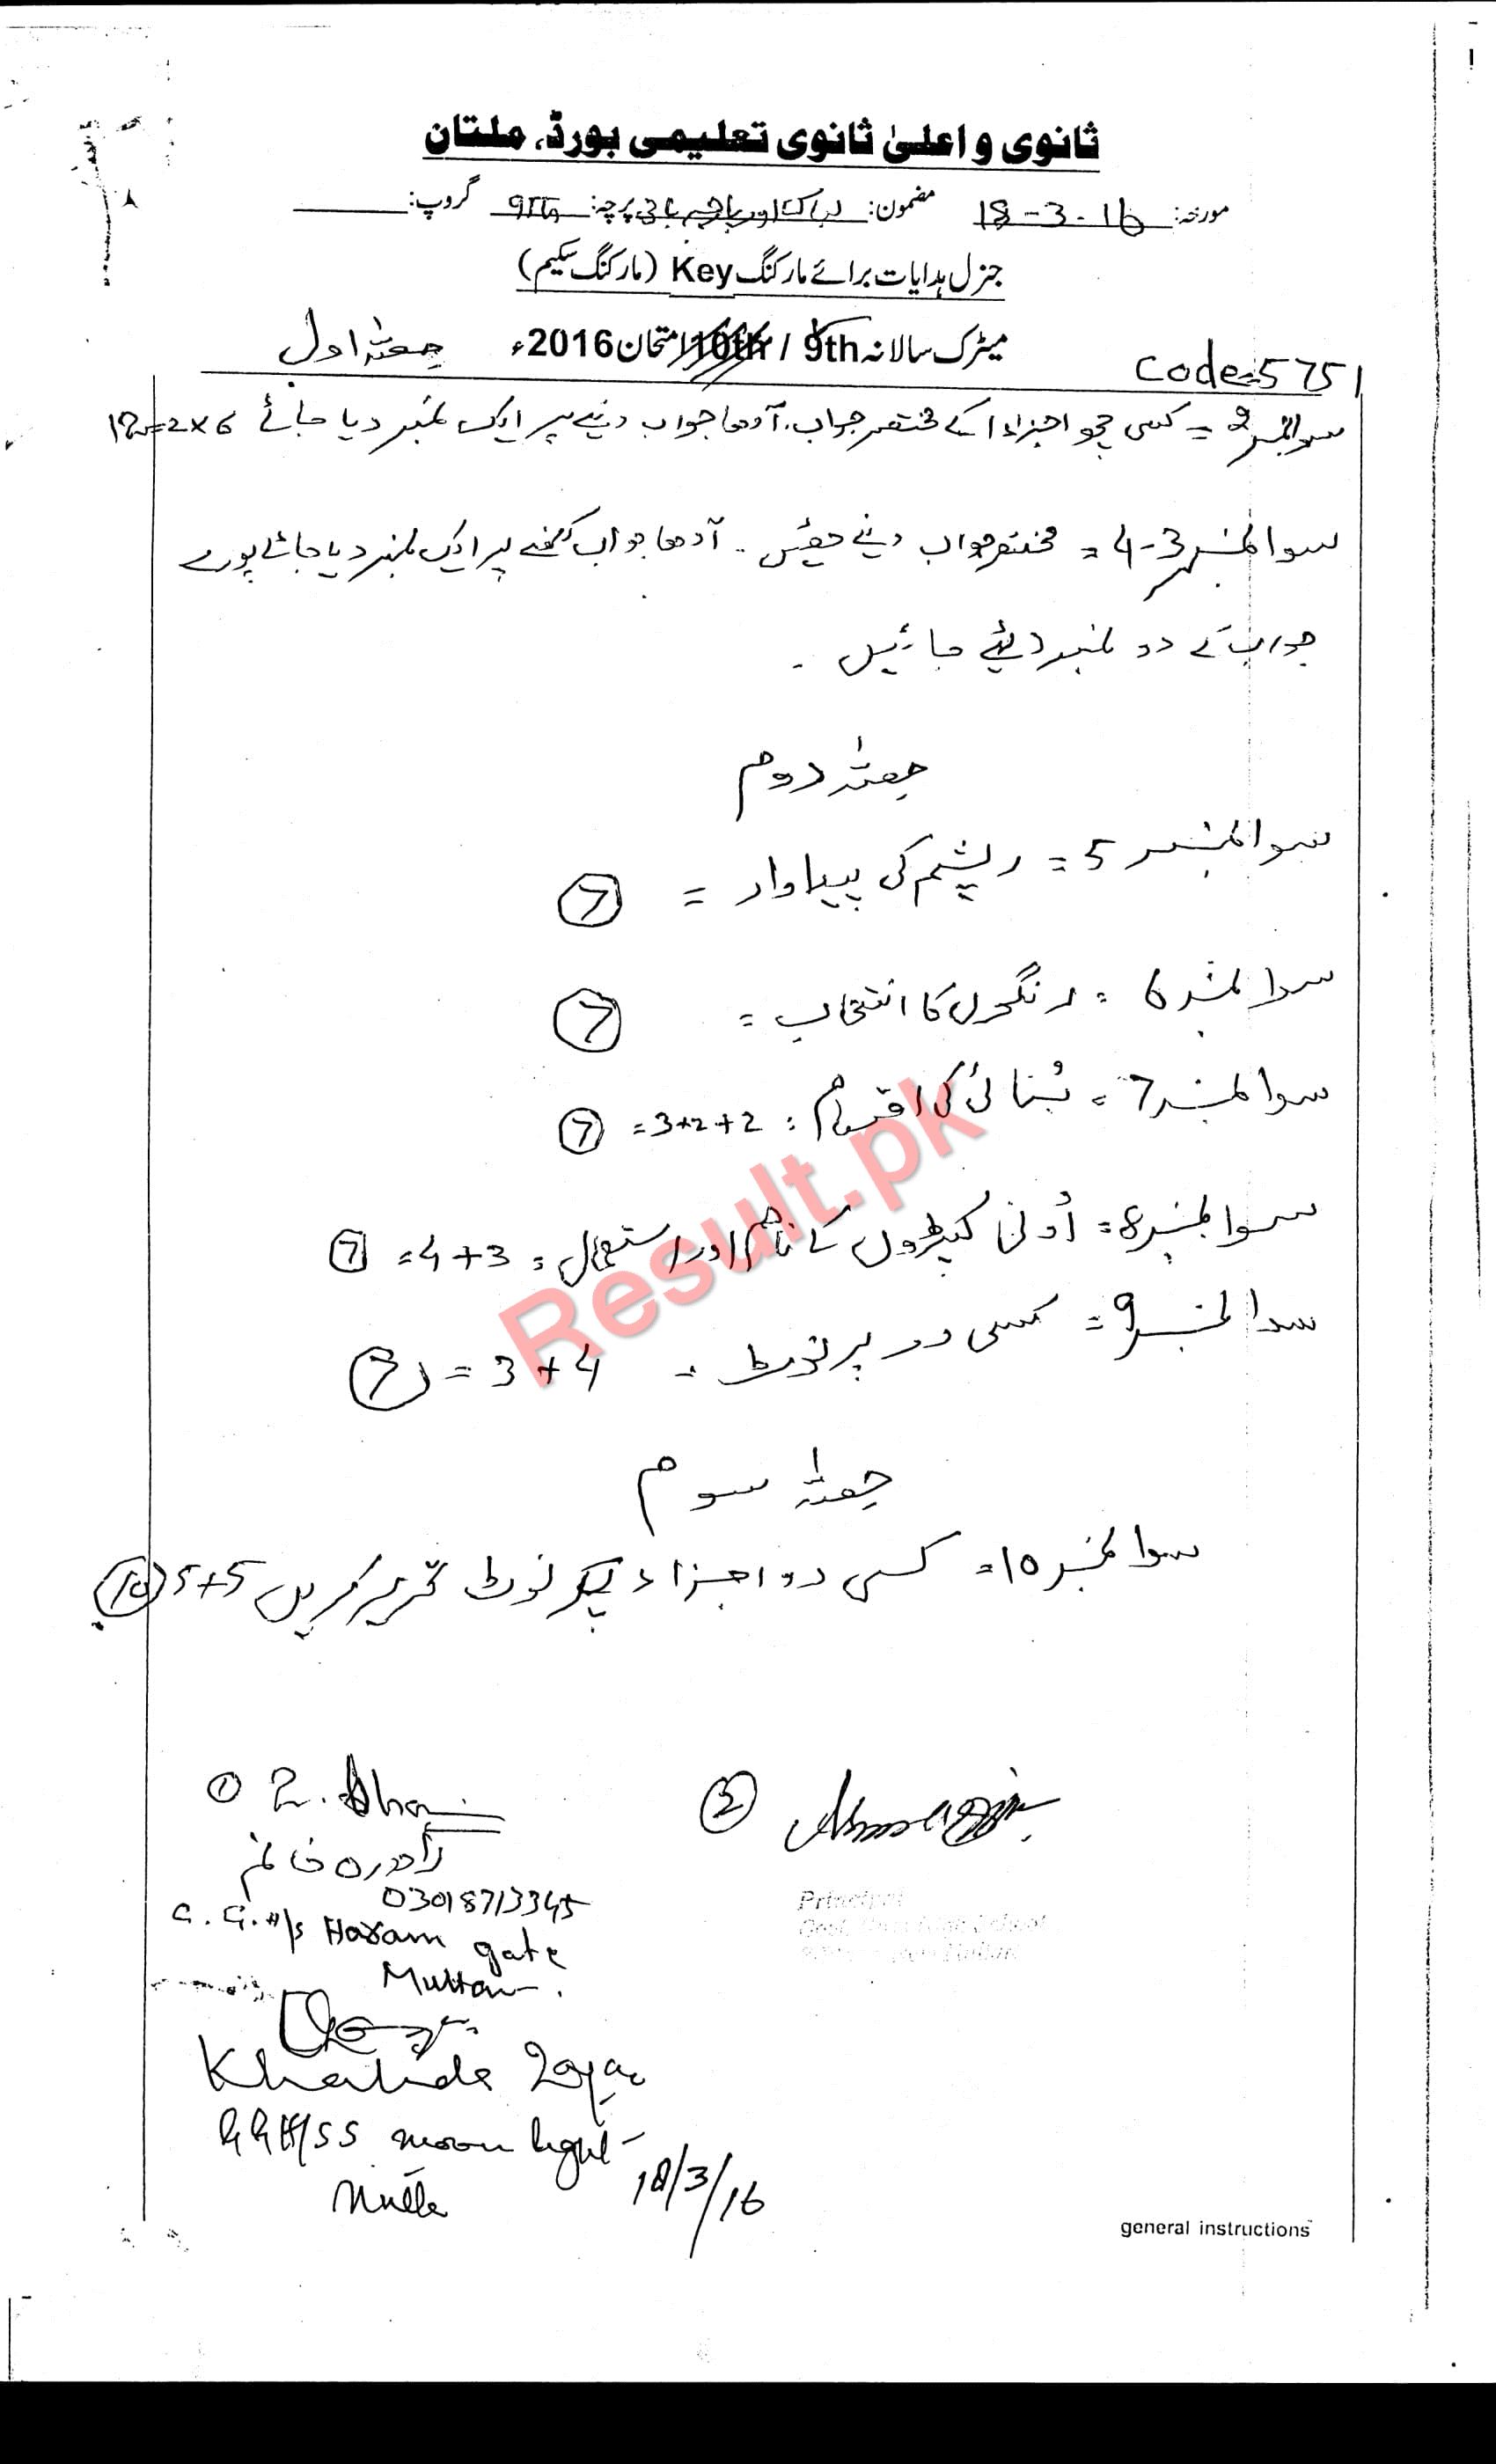 ثانوی و اعلیٰ ثانوی تعلیمی بورڈ، ملتان
مورخہ: 18-3-16 مضمون: لباس اور پارچہ بافی پرچہ: 9th گروپ:
جنرل ہدایات برائے مارکنگ Key (مارکنگ سکیم)
میٹرک سالانہ 9th / 10th امتحان 2016ء حصہ اول
Code=5751
سوال نمبر 2 = کسی چھ اجزاء کے مختصر جواب۔ آدھا جواب دینے پر ایک نمبر دیا جائے 12=2×6
سوال نمبر 3-4 = مختصر جواب دینے ہیں۔ آدھا جواب لکھنے پر ایک نمبر دیا جائے پورے
جواب کے دو نمبر دیئے جائیں۔
حصہ دوم
سوال نمبر 5 = ریشم کی پیداوار = 7
سوال نمبر 6 = رنگوں کا انتخاب = 7
سوال نمبر 7 = بُنائی کی اقسام = 3+2+2 = 7
سوال نمبر 8 = اُونی کپڑوں کے نام اور استعمال = 4+3 = 7
سوال نمبر 9 = کسی دو پر نوٹ = 3+4 = 7
حصہ سوم
سوال نمبر 10 = کسی دو اجزاء پر نوٹ تحریر کریں 5+5 10
Result.pk
① ②
خانم
03018713345
G.G.H/S Haram gate
Multan.
Khalida
GGH/SS moon light
18/3/16
Principal
general instructions